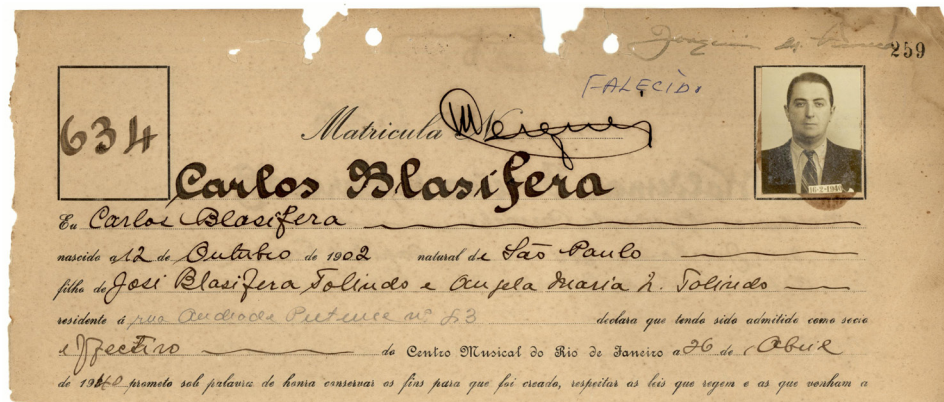 Joaquim
259
FALECIDO
634
Matricula
16-2-1940
Carlos Blasifera
Eu Carlos Blasifera
nascido a 12 de Outubro de 1902 natural de São Paulo
filho de José Blasifera Tolindo e Angela Maria L. Tolindo
residente á rua Andrade Pertence nº 23 declara que tendo sido admitido como socio
effectivo do Centro Musical do Rio de Janeiro a 26 de Abril
de 1940 prometo sob palavra de honra conservar os fins para que foi creado, respeitar as leis que regem e as que venham a